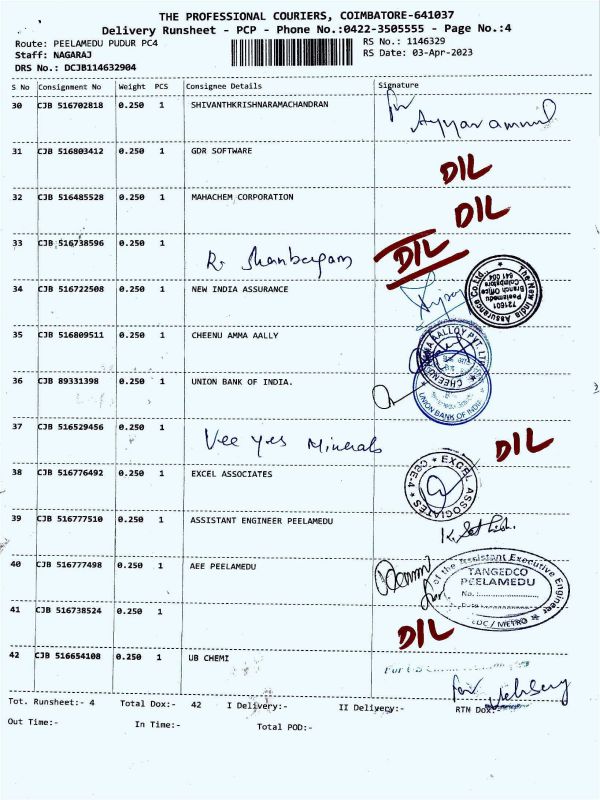 THE PROFESSIONAL COURIERS, COIMBATORE-641037
Delivery Runsheet - PCP - Phone No.:0422-3505555 - Page No.:4
Route: PEELAMEDU PUDUR PC4
RS No.: 1146329
Staff: NAGARAJ
RS Date: 03-Apr-2023
DRS No.: DCJB114632904
S No Consignment No Weight PCS Consignee Details Signature
30 CJB 516702818 0.250 1 SHIVANTHKRISHNARAMACHANDRAN for
31 CJB 516803412 0.250 1 GDR SOFTWARE D/L
32 CJB 516485528 0.250 1 MAHACHEM CORPORATION D/L
33 CJB 516738596 0.250 1 R. Shanbagam D/L
34 CJB 516722508 0.250 1 NEW INDIA ASSURANCE
The New India Assurance Co. Ltd.,
721601
Peelamedu
Branch Office
Coimbatore
641 004
35 CJB 516809511 0.250 1 CHEENU AMMA AALLY
36 CJB 89331398 0.250 1 UNION BANK OF INDIA.
UNION BANK OF INDIA
37 CJB 516529456 0.250 1 Vee yes Minerals D/L
38 CJB 516776492 0.250 1 EXCEL ASSOCIATES
EXCEL ASSOCIATES CBE-4
39 CJB 516777510 0.250 1 ASSISTANT ENGINEER PEELAMEDU
K. Sathish.
40 CJB 516777498 0.250 1 AEE PEELAMEDU
of the Assistant Executive Engineer
TANGEDCO
PEELAMEDU
No.:
EDC / METRO
41 CJB 516738524 0.250 1 D/L
42 CJB 516654108 0.250 1 UB CHEMI
for
Tot. Runsheet:- 4 Total Dox:- 42 I Delivery:- II Delivery:- RTN Dox:-
Out Time:- In Time:- Total POD:-